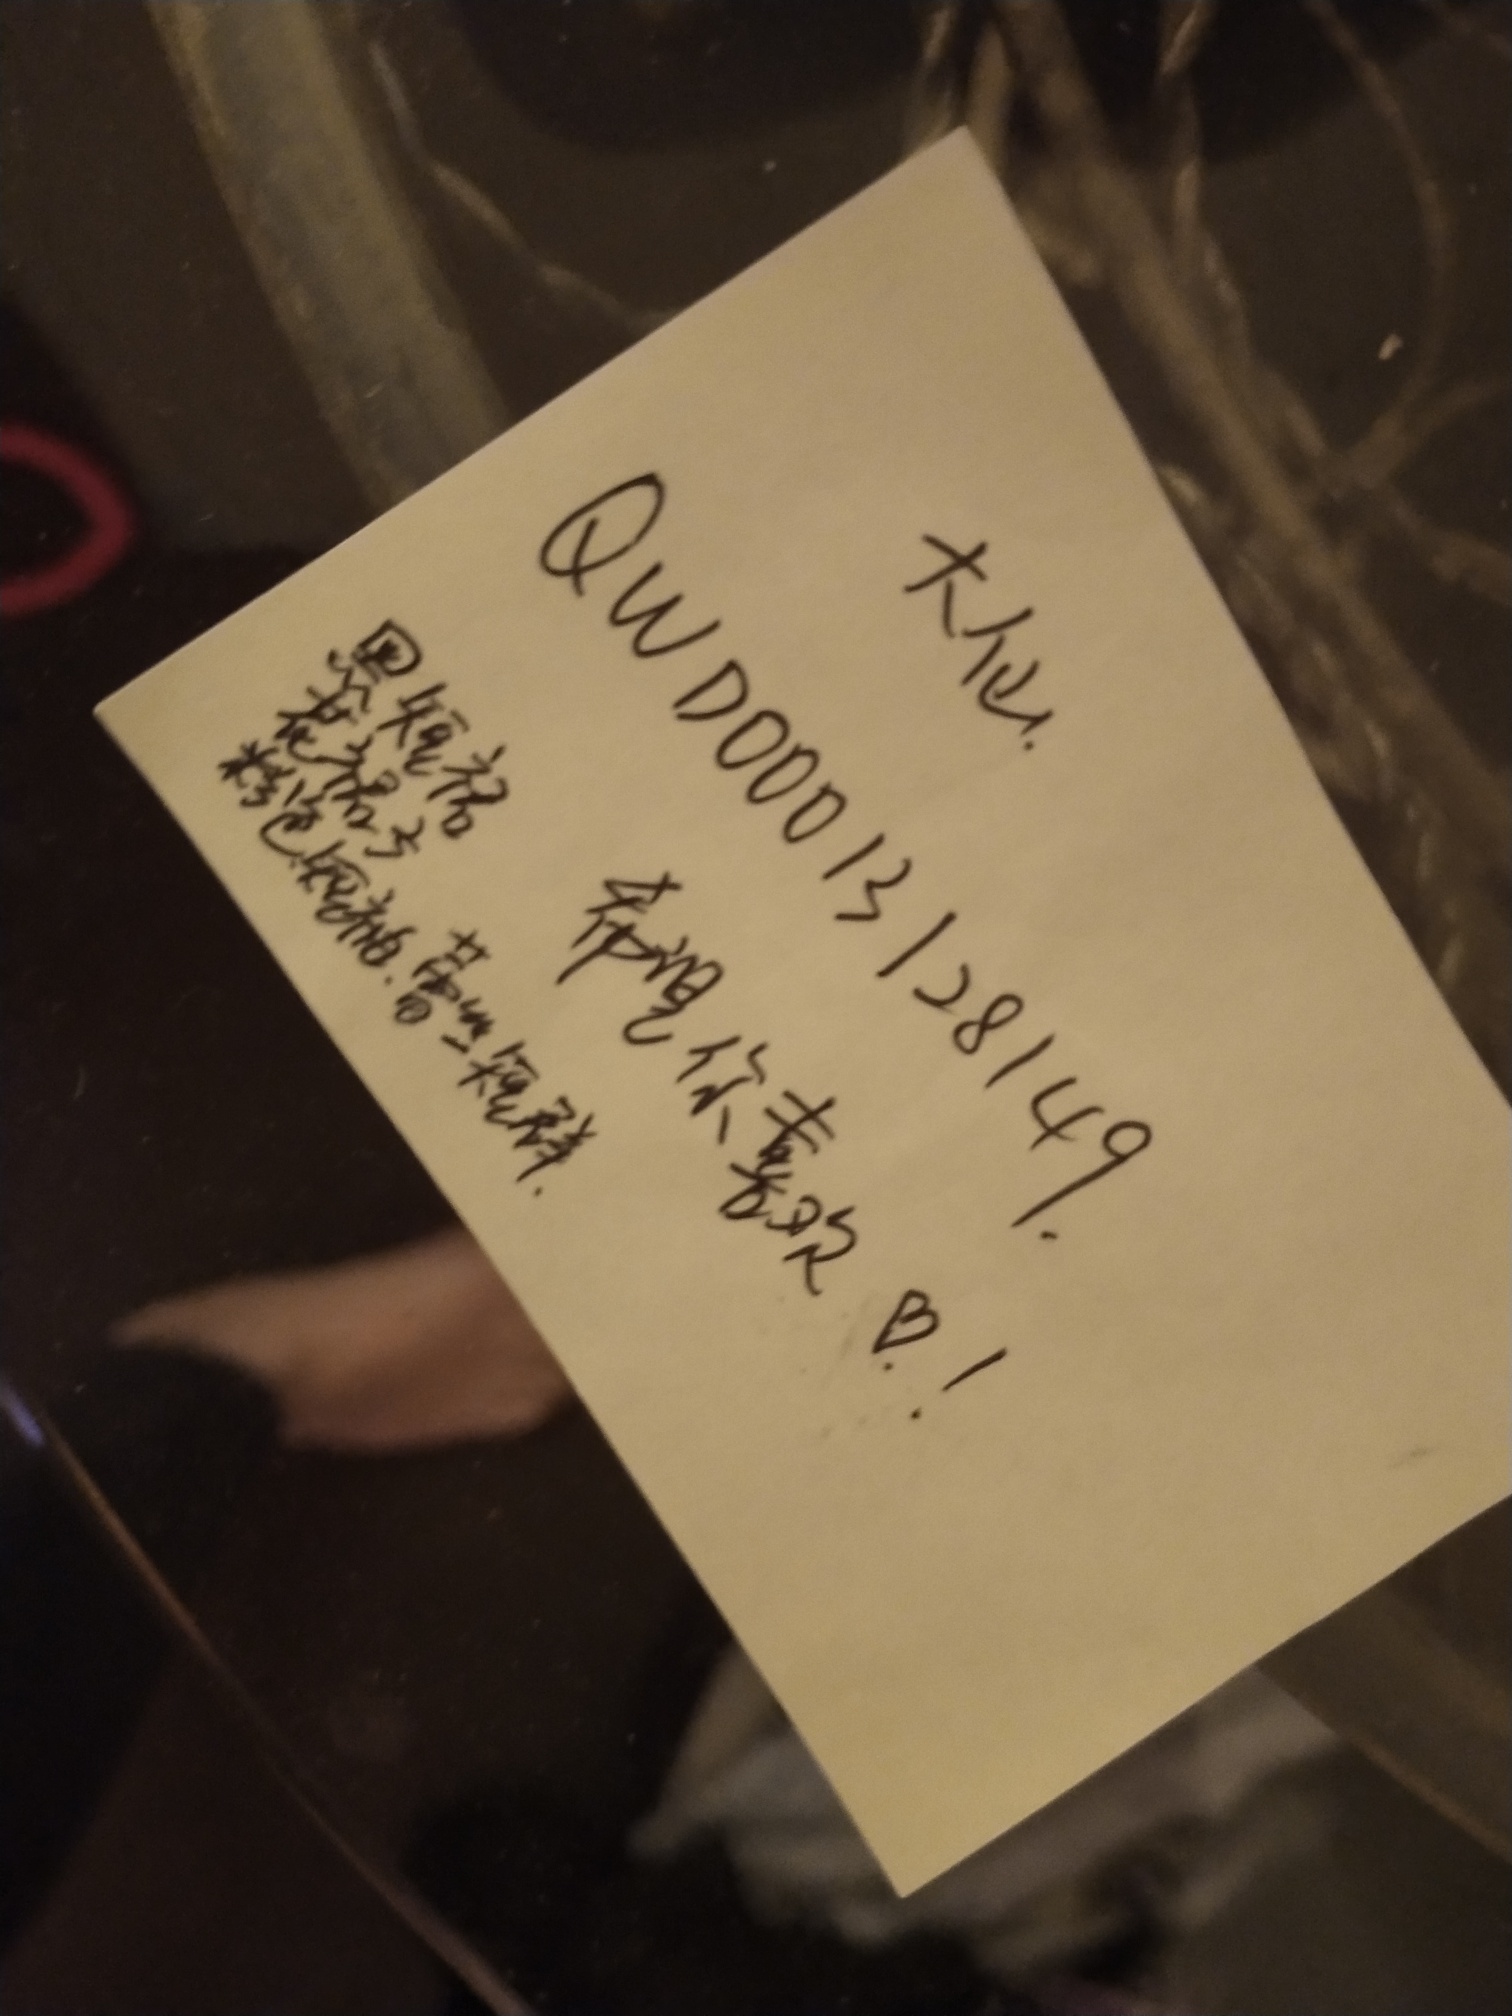 大仙.
QWD0003128149.
希望你喜欢♡.!
黑短裙
粉色短袖.蕾丝短裙.